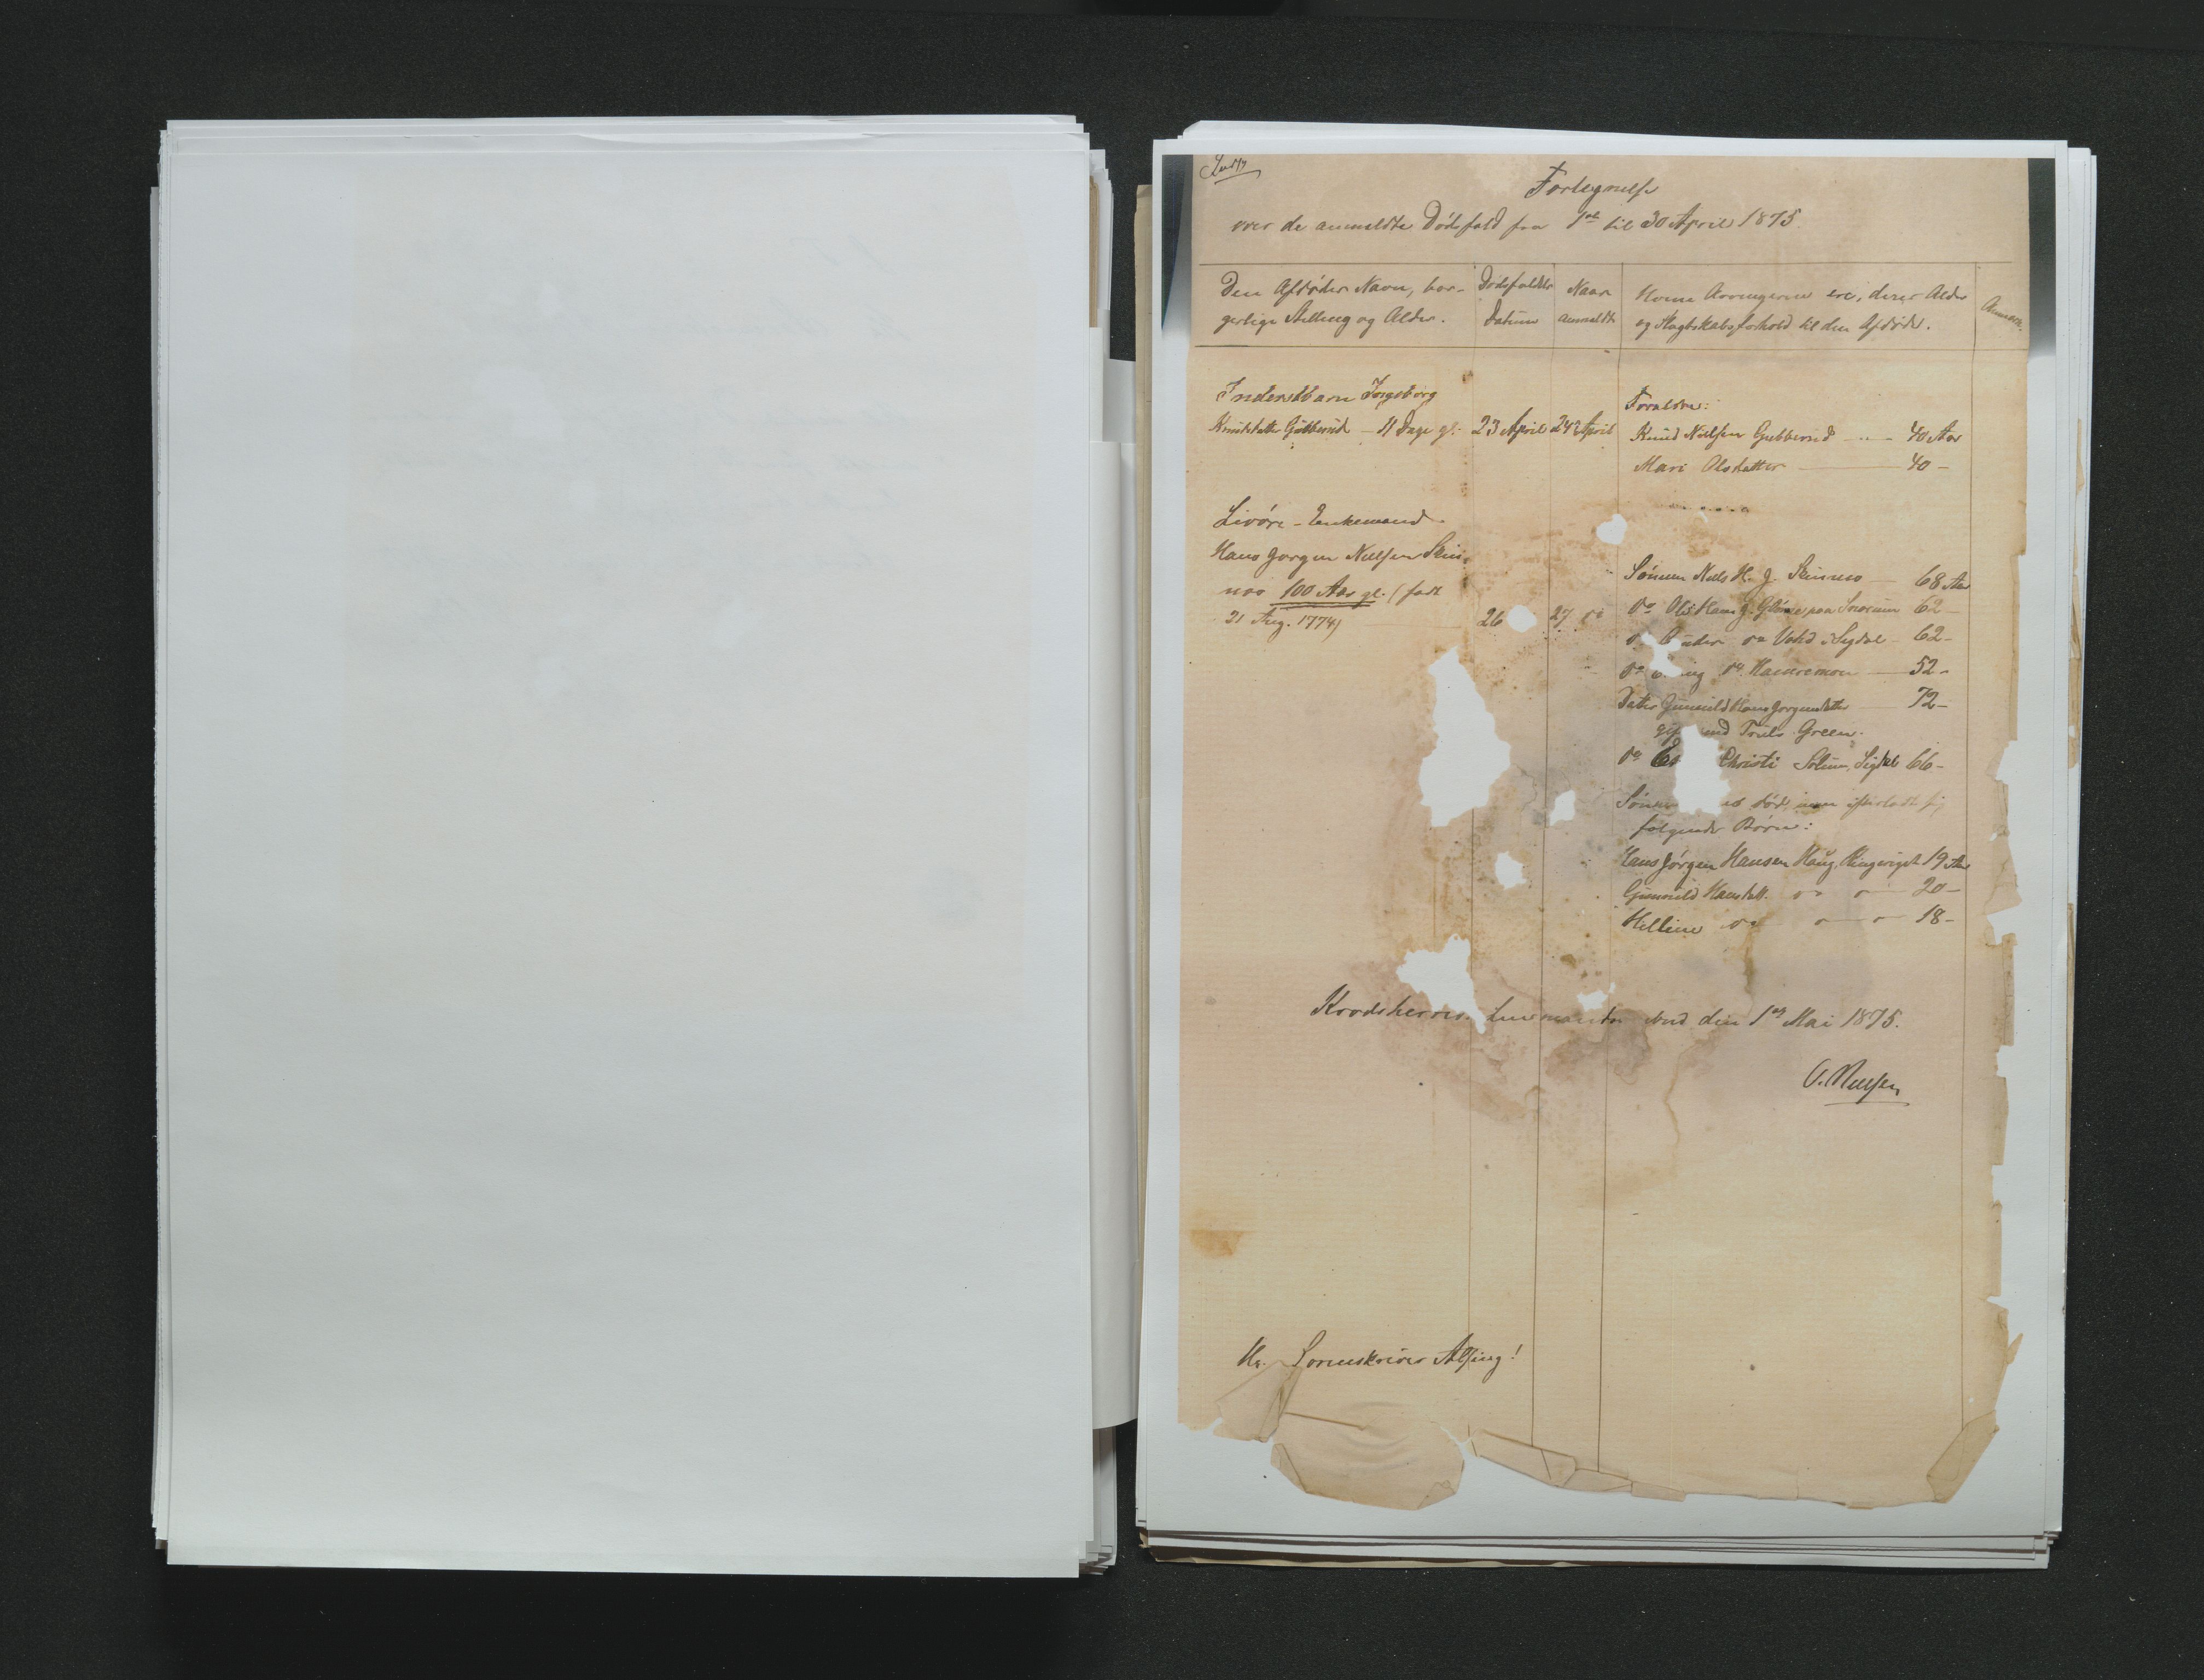 Indf
Fortegnelse
over de anmeldte Dødsfald fra 1ste til 30 April 1875.
Den Afdødes Navn, bor-
gerlige Stilling og Alder.
Dødsfaldets
Datum
Naar
anmeldt
Hvem Arvingerne ere, deres Alder
og Slægtskabsforhold til den Afdøde.
Anmærk.
Inderstbarn Ingeborg
Knudsdatter Gubberud - 11 Dage gl.
23 April
24 April
Forældre:
Knud Nielsen Gubberud - 40 Aar
Mari Olsdatter - 40 -
Livøre - Enkemand
Hans Jørgen Nielsen Skin-
nes 100 Aar gl. (født
21 Aug. 1774)
26
27 do
Sønnen Niels H. J. Skinnes - 68 Aar
do Ole Hans J. paa Snarum 62 -
do do i Sigdal - 62 -
do do - 52 -
Datter Gunnild Hans Jørgensdatter - 72 -
Truls Green.
do Christi Solum, Sigdal 66 -
død, men efterladt sig
følgende Børn:
Hans Jørgen Hansen Haug, Ringeriget 19 Aar
Gunnild Hansdatt. do - 20 -
Helline do - 18 -
Krødsherred Lensmands den 1ste Mai 1875.
O. Nielsen
Hr. Sorenskriver Alsing!